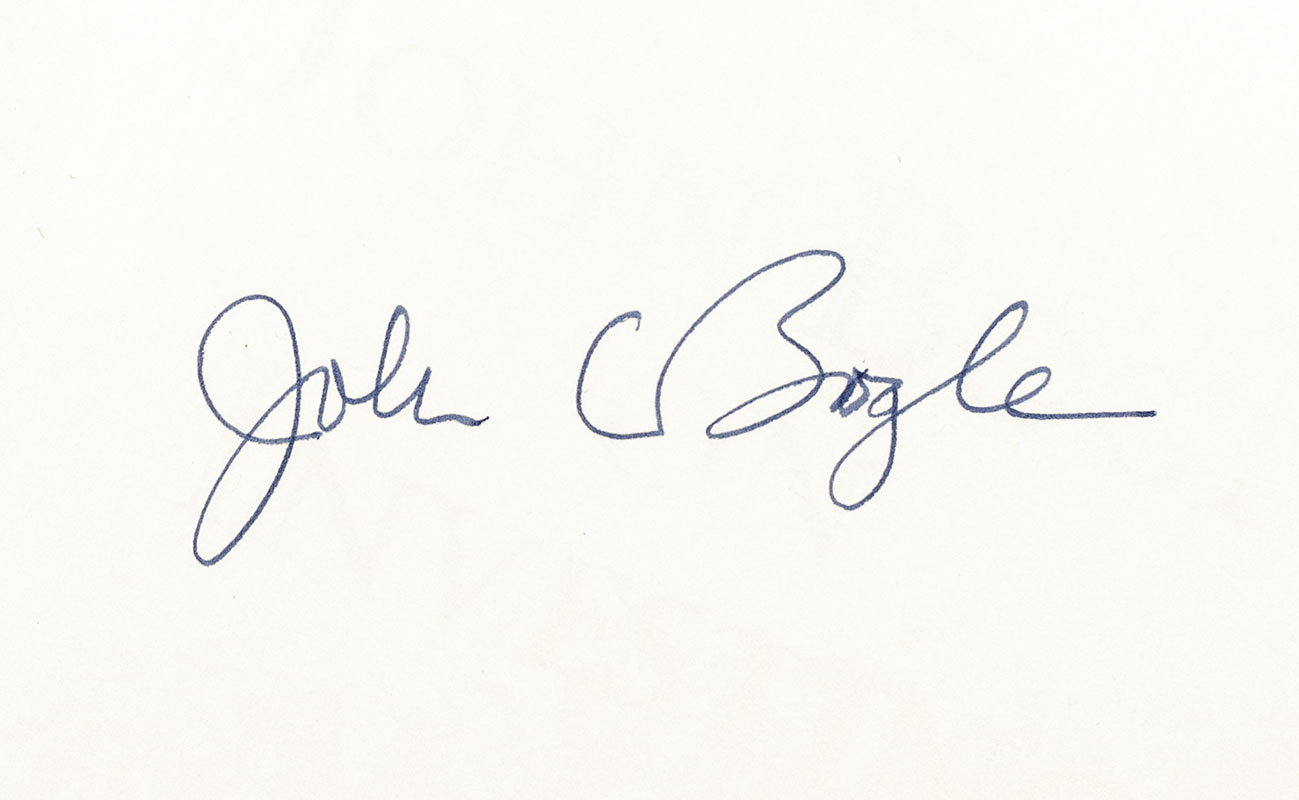 John C Bogle